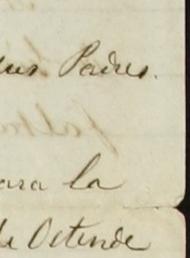 sus Padres.
para la
de Ostende